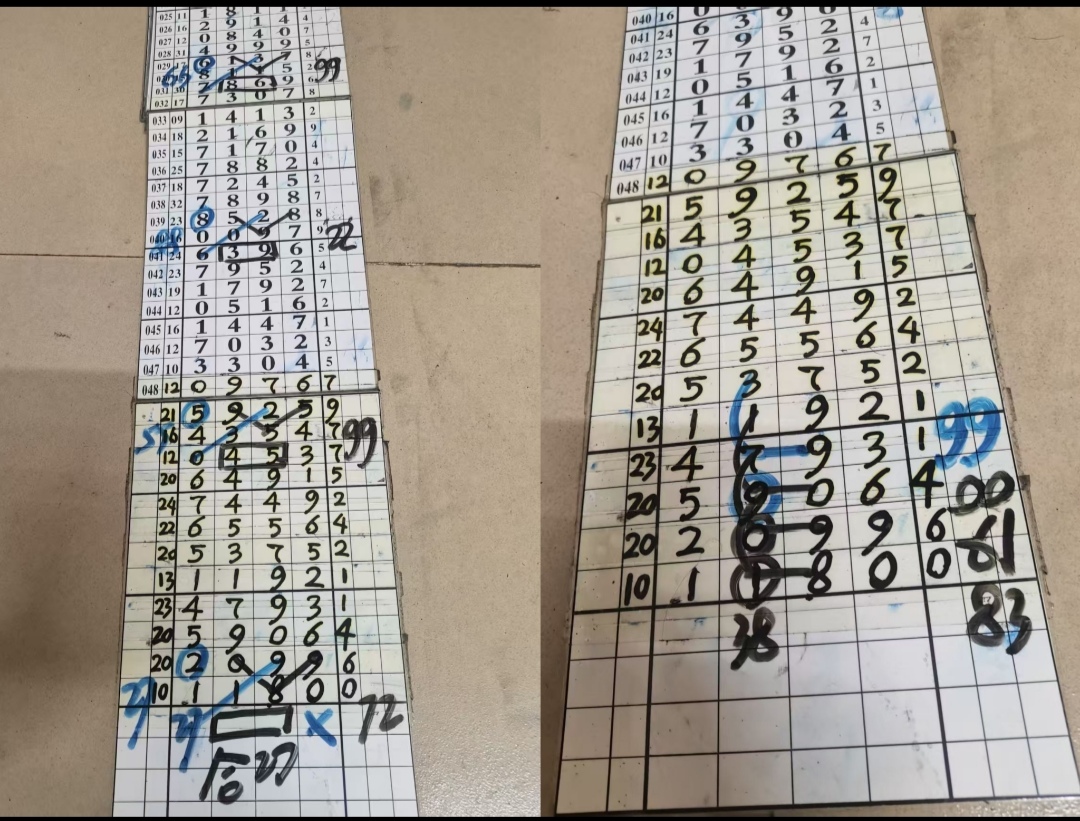 025 11 1 8 1 1 4
026 16 2 9 1 4
027 12 0 8 4 0 7
028 31 4 9 9 9 5
029 6 1 3 7 8
8 1 4 5 2 99
031 30 7 8 6 9 6
032 17 7 3 0 7 8
033 09 1 4 1 3 2
034 18 2 1 6 9 9
035 15 7 1 7 0 4
036 25 7 8 8 2 4
037 18 7 2 4 5 2
038 32 7 8 9 8 7
039 23 8 5 2 8 8
040 16 0 0 9 7 9 22
041 24 6 3 9 6 5
042 23 7 9 5 2 4
043 19 1 7 9 2 7
044 12 0 5 1 6 2
045 16 1 4 4 7 1
046 12 7 0 3 2 3
047 10 3 3 0 4 5
048 12 0 9 7 6 7
21 5 9 2 5 9
16 4 3 5 4 7 99
12 0 4 5 3 7
20 6 4 9 1 5
24 7 4 4 9 2
22 6 5 5 6 4
20 5 3 7 5 2
13 1 1 9 2 1
23 4 7 9 3 1
20 5 9 0 6 4
20 2 0 9 9 6
27 10 1 1 8 0 0
27 X 72
27
040 16 0 0 9
041 24 6 3 9 2 4
042 23 7 9 5 2 7
043 19 1 7 9 2 2
044 12 0 5 1 6 1
045 16 1 4 4 7 3
046 12 7 0 3 2 5
047 10 3 3 0 4
048 12 0 9 7 6 7
21 5 9 2 5 9
16 4 3 5 4 7
12 0 4 5 3 7
20 6 4 9 1 5
24 7 4 4 9 2
22 6 5 5 6 4
20 5 3 7 5 2
13 1 1 9 2 1
23 4 7 9 3 1 99
20 5 9 0 6 4 00
20 2 0 9 9 6 61
10 1 1 8 0 0
38 83